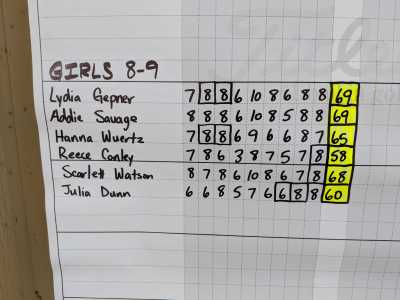 GIRLS 8-9
Lydia Gepner 7 8 8 6 10 8 6 8 8 69
Addie Savage 8 8 8 6 10 8 5 8 8 69
Hanna Wuertz 7 8 8 6 9 6 6 8 7 65
Reece Conley 7 8 6 3 8 7 5 7 8 58
Scarlett Watson 8 7 8 6 10 8 6 7 8 68
Julia Dunn 6 6 8 5 7 6 6 8 8 60